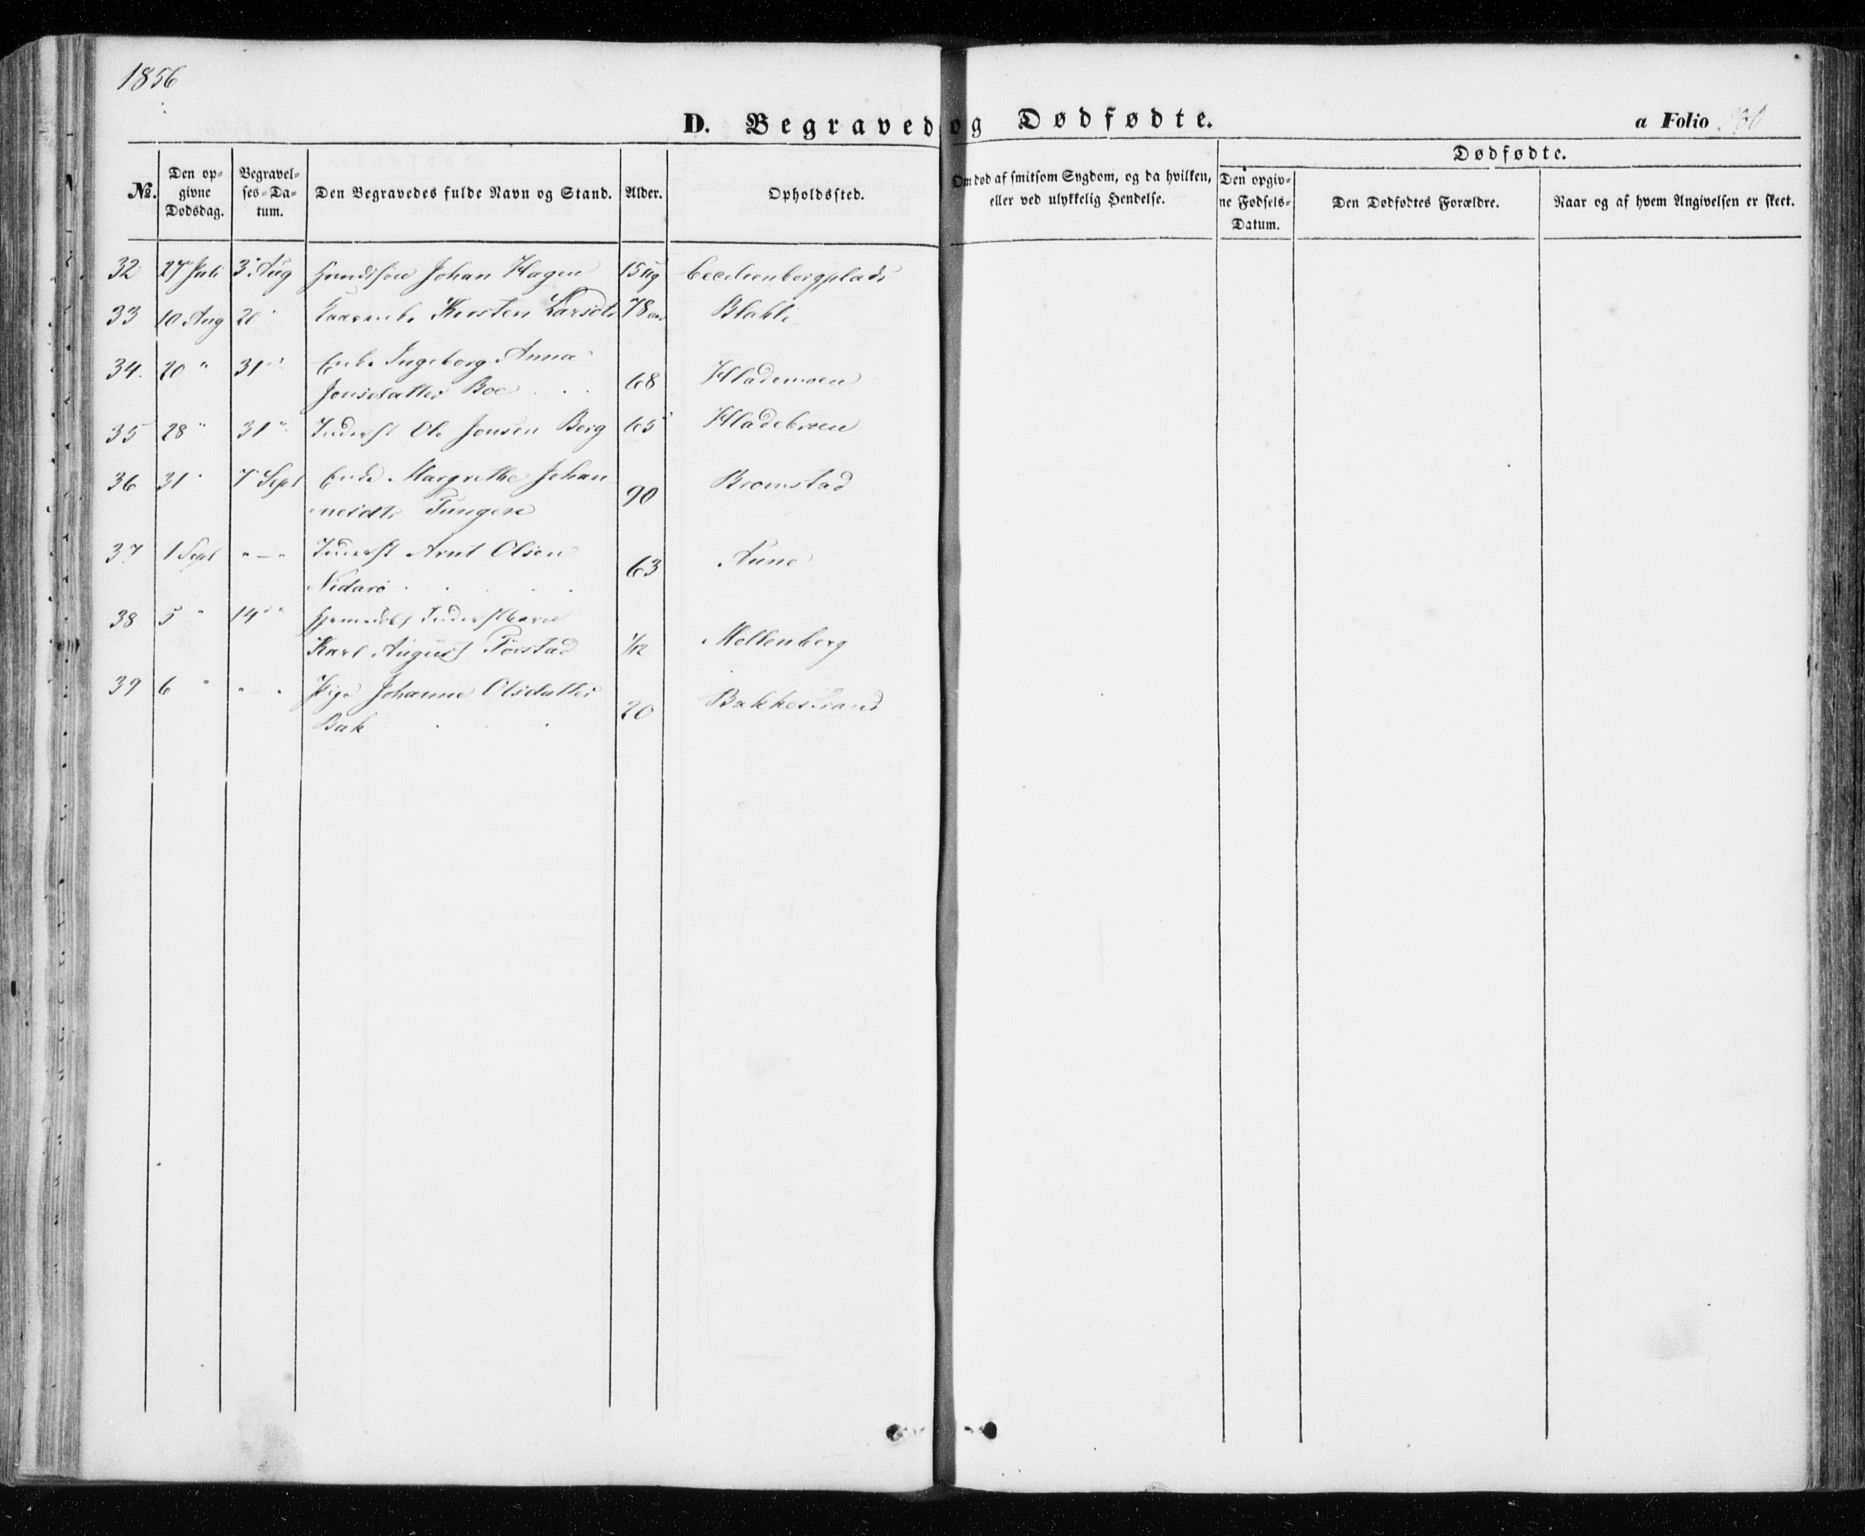 1856
D. Begravede og Dødfødte.
a Folio
№.
Den opgivne Dødsdag.
Begravelses-Datum.
Den Begravedes fulde Navn og Stand.
Alder.
Opholdssted.
Om død af smitsom Sygdom, og da hvilken,
eller ved ulykkelig Hendelse.
Dødfødte.
Den opgivne Fødsels-Datum.
Den Dødfødtes Forældre.
Naar og af hvem Angivelsen er skeet.
32 27 Juli 3 Aug Johan Hagen 15 Cecilienborgplads
33 10 Aug Kirsten Larsdt 78 Blakli
34. 20 " 31 " Enke Ingeborg Anna
Jonsdatter Boe . . 68 Hlademoen
35 28 " 31 " Inderst Ole Jonsen Berg 65 Hladebroen
36 31 " 7 Sept Enke Margrethe Johan
nesdt Tungen 90 Bromstad
37 1 Sept " — " Inderst Arnt Olsen
Nidarø . . . . 63 Aune
38 5 " 14 " " Inderstbarn
Karl August Forstad 1/12 Mellenberg
39 6 " " — " Pige Johanne Olsdatter
Bak . . . 20 Bakkestrand